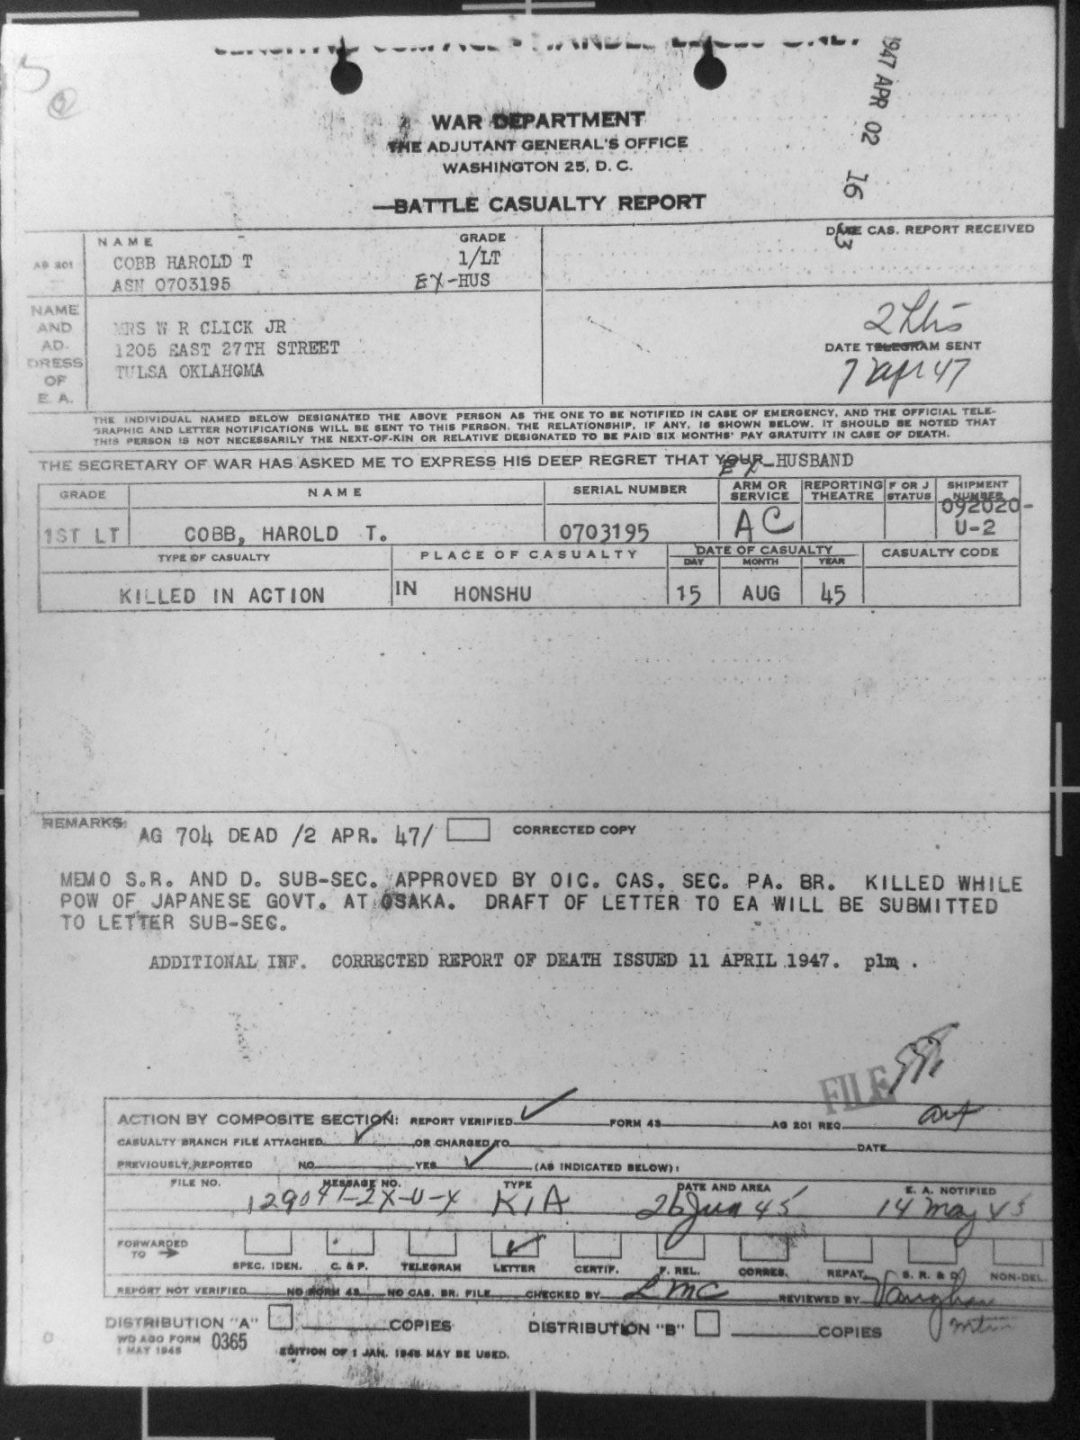 1947 APR 02 16
WAR DEPARTMENT
THE ADJUTANT GENERAL'S OFFICE
WASHINGTON 25, D. C.
—BATTLE CASUALTY REPORT
DATE CAS. REPORT RECEIVED
NAME GRADE
AG 201 COBB HAROLD T 1/LT
ASN 0703195 EX-HUS
NAME AND ADDRESS OF E. A.
MRS W R CLICK JR
1205 EAST 27TH STREET
TULSA OKLAHOMA
2 Ltrs
DATE TELEGRAM SENT
7 Apr 47
THE INDIVIDUAL NAMED BELOW DESIGNATED THE ABOVE PERSON AS THE ONE TO BE NOTIFIED IN CASE OF EMERGENCY, AND THE OFFICIAL TELE-
GRAPHIC AND LETTER NOTIFICATIONS WILL BE SENT TO THIS PERSON. THE RELATIONSHIP, IF ANY, IS SHOWN BELOW. IT SHOULD BE NOTED THAT
THIS PERSON IS NOT NECESSARILY THE NEXT-OF-KIN OR RELATIVE DESIGNATED TO BE PAID SIX MONTHS' PAY GRATUITY IN CASE OF DEATH.
THE SECRETARY OF WAR HAS ASKED ME TO EXPRESS HIS DEEP REGRET THAT YOUR EX-HUSBAND
GRADE NAME SERIAL NUMBER ARM OR SERVICE REPORTING THEATRE F OR J STATUS SHIPMENT NUMBER
1ST LT COBB, HAROLD T. 0703195 AC 092020-
U-2
TYPE OF CASUALTY PLACE OF CASUALTY DATE OF CASUALTY CASUALTY CODE
DAY MONTH YEAR
KILLED IN ACTION IN HONSHU 15 AUG 45
REMARKS: AG 704 DEAD /2 APR. 47/ CORRECTED COPY
MEMO S.R. AND D. SUB-SEC. APPROVED BY OIC. CAS. SEC. PA. BR. KILLED WHILE
POW OF JAPANESE GOVT. AT OSAKA. DRAFT OF LETTER TO EA WILL BE SUBMITTED
TO LETTER SUB-SEC.
ADDITIONAL INF. CORRECTED REPORT OF DEATH ISSUED 11 APRIL 1947. plm .
FILE
ACTION BY COMPOSITE SECTION: REPORT VERIFIED FORM 43 AG 201 REQ.
CASUALTY BRANCH FILE ATTACHED OR CHARGED TO DATE
PREVIOUSLY REPORTED NO YES (AS INDICATED BELOW):
FILE NO. MESSAGE NO. TYPE DATE AND AREA E. A. NOTIFIED
129041-2X-U-X KIA 26 Jun 45 14 May 45
FORWARDED TO
SPEC. IDEN. C. & P. TELEGRAM LETTER CERTIF. F. REL. CORRES. REPAT. S. R. & D. NON-DEL.
REPORT NOT VERIFIED NO FORM 43 NO CAS. BR. FILE CHECKED BY LMC REVIEWED BY Vaughan
DISTRIBUTION "A" COPIES DISTRIBUTION "B" COPIES
WD AGO FORM 0365
1 MAY 1945
EDITION OF 1 JAN. 1945 MAY BE USED.